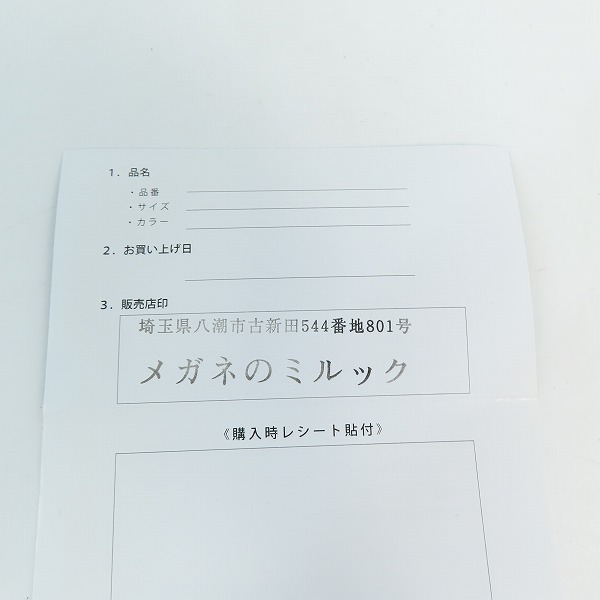 1．品名
・品番
・サイズ
・カラー
2．お買い上げ日
3．販売店印
埼玉県八潮市古新田544番地801号
メガネのミルック
《購入時レシート貼付》